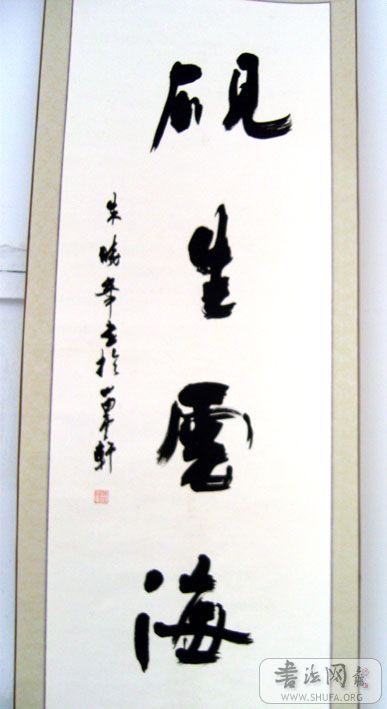 砚生雲海
朱晓華书於山草轩
书法网
WWW.SHUFA.ORG